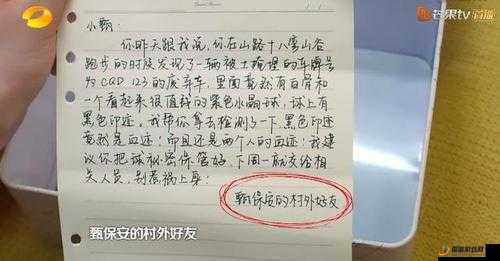 芒果TV 首播
小甄:
你昨天跟我说,你在山路十八雾山谷
跑步的时候发现了一辆被土掩埋的车牌号
为CQD 123的废弃车,里面竟然有白骨和
一个看起来很值钱的紫色水晶球,球上有
黑色印迹,我帮你拿去检测了一下,黑色印迹
竟然是血迹!而且还是两个人的血迹!我建
议你把球秘密保管好,下周一就交给相
关人员,别惹祸上身.
甄保安的村外好友
甄保安的村外好友